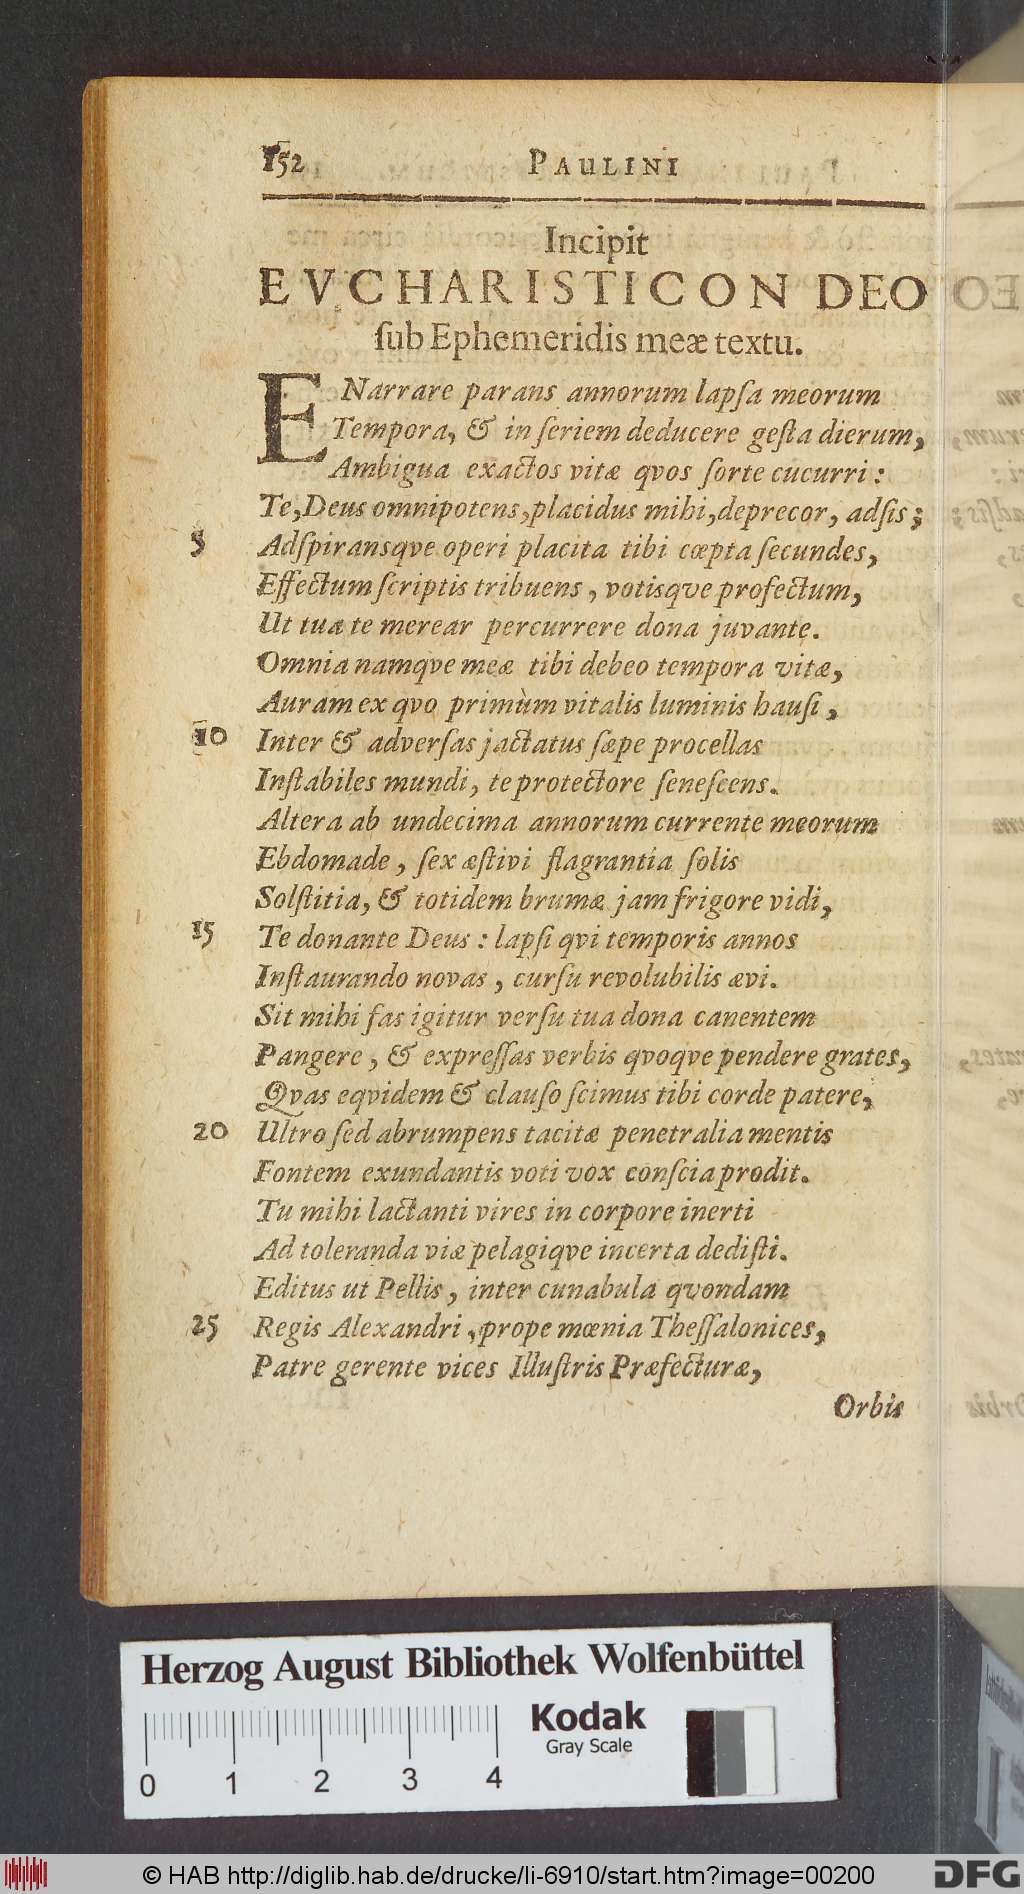 152 PAULINI
Incipit
EVCHARISTICON DEO
ſub Ephemeridis meæ textu.
ENarrare parans annorum lapſa meorum
Tempora, & in ſeriem deducere geſta dierum,
Ambigua exactos vitæ qvos ſorte cucurri:
Te, Deus omnipotens, placidus mihi, deprecor, adſis;
5 Adſpiransqve operi placita tibi cœpta ſecundes,
Effectum ſcriptis tribuens, votisqve profectum,
Ut tua te merear percurrere dona juvante.
Omnia namqve meæ tibi debeo tempora vitæ,
Auram ex qvo primùm vitalis luminis hauſi,
10 Inter & adverſas jactatus ſæpe procellas
Inſtabiles mundi, te protectore ſeneſcens.
Altera ab undecima annorum currente meorum
Ebdomade, ſex æſtivi flagrantia ſolis
Solſtitia, & totidem brumæ jam frigore vidi,
15 Te donante Deus: lapſi qvi temporis annos
Inſtaurando novas, curſu revolubilis ævi.
Sit mihi fas igitur verſu tua dona canentem
Pangere, & expreſſas verbis qvoqve pendere grates,
Qvas eqvidem & clauſo ſcimus tibi corde patere,
20 Ultro ſed abrumpens tacitæ penetralia mentis
Fontem exundantis voti vox conſcia prodit.
Tu mihi lactanti vires in corpore inerti
Ad toleranda viæ pelagiqve incerta dediſti.
Editus ut Pellis, inter cunabula qvondam
25 Regis Alexandri, prope mœnia Theſſalonices,
Patre gerente vices Illuſtris Præfecturæ,
Orbis
Herzog August Bibliothek Wolfenbüttel
Kodak
Gray Scale
0 1 2 3 4
© HAB http://diglib.hab.de/drucke/li-6910/start.htm?image=00200
DFG